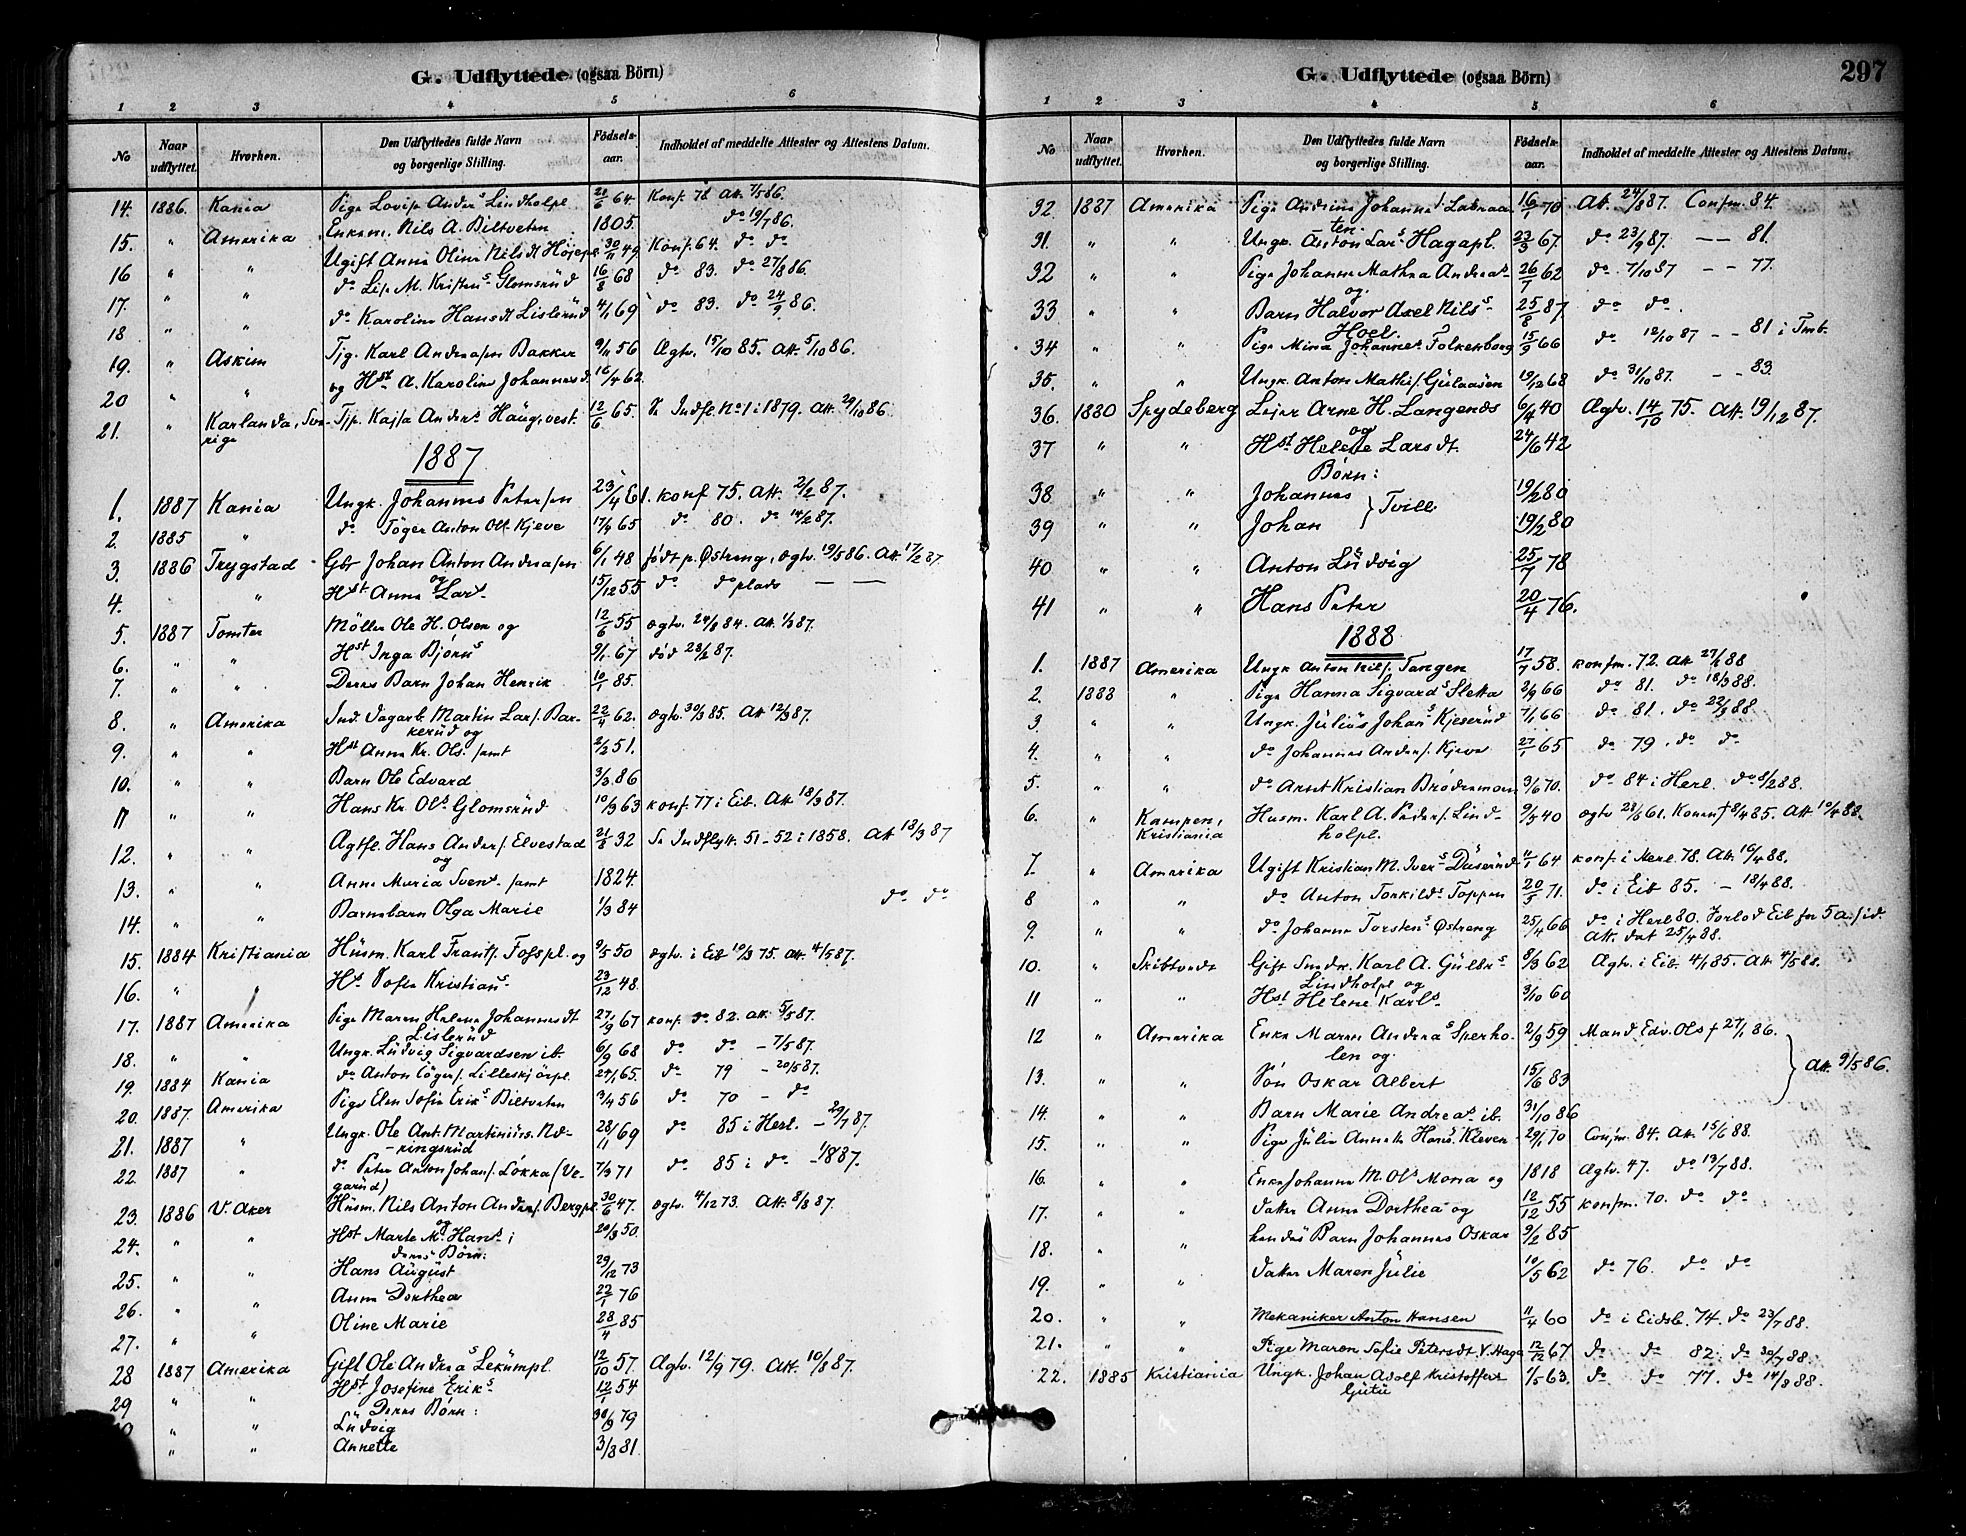 G. Udflyttede (ogsaa Börn)
1 2 3 4 5 6
No Naar udflyttet. Hvorhen. Den Udflyttedes fulde Navn og borgerlige Stilling. Födsels-aar. Indholdet af meddelte Attester og Attestens Datum.
14. 1886. Kania Pige Lovise Anders Lindholpl. 21/6 64. Konf. 78 Att. 7/5 86.
15. " Amerika Enkem. Nils A. Biltveten 1805. do 19/7 86.
16 " " Ugift Anne Oline Nilsdt Højepl. 30/11 49 Konf. 64. do do
17. " " do Lise M. Kristens Glomsrud 16/8 68 do 83. do 27/8 86.
18 " " do Karoline Hansdt Lislerud 4/1 69 do 83. do 24/9 86.
19. " Askim Tjg. Karl Andreasen Bakker 9/11 56 Ægtv. 15/10 85. Att. 5/10 86.
20 " " og Hst. A. Karoline Johannesd. 16/4 62.
21. " Karlanda, Sve-rige Tjp. Kajsa Anders Haug, vest. 12/6 65. Se Indfl. No 1 i 1879. Att. 29/10 86.
1887
1. 1887 Kania Ungk. Johannes Petersen 23/4 61. konf 75. Att. 2/2 87.
2. 1885 " do Töger Anton Ols. Kjeve 17/2 65 do 80. do 14/2 87.
3. 1886 Trygstad Gbr Johan Anton Andreasen 6/1 48 født p. Østreng, ægtv. 19/5 86. Att. 17/2 87
og
4. " Hst. Anne Lars. 15/12 55 do do plads — —
5. 1887 Tomter Møller Ole H. Olsen og 12/6 55 ægtv. 24/8 84. Att. 1/3 87.
6. " " Hst Inga Bjørns 9/1 67 død 23/2 87.
7. " " Deres Barn Johan Henrik 10/1 85.
8. " Amerika Ind. Dagarb. Martin Lars. Bar-kerud og 22/4 62. ægtv. 30/3 85. Att 12/3 87.
9. " " Hst Anne Kr. Ols. samt 2/2 51.
10. " " Barn Ole Edvard 3/3 86
11 " " Hans Kr. Ols Glomsrud 10/3 63 konf. 77 i Eib. Att 18/3 87.
12. " " Agtfl. Hans Anders. Elvestad 21/5 32 Se Indflytt. 51-52 i 1858. Att 18/3 87
og
13. " " Anne Maria Svens. samt 1824. do do
14. " " Barnebarn Olga Marie 1/3 84
15. 1884 Kristiania Husm. Karl Frants. Fosspl. og 9/5 50 ægtv. i Eib 19/3 75. Att. 4/5 87.
16. " " Hst Sofie Kristians. 23/12 48.
17. 1887 Amerika Pige Maren Helene Johannesdt Lislerud 27/9 67 konf. do 82. Att. 5/5 87.
18. " " Ungk. Ludvig Sigvardsen ib. 6/9 68 do do - 7/5 87.
19. 1884 Kania do Anton Töger. Lilleskjörpl. 24/1 65. do 79 - 20/5 87.
20. 1887. Amerika Pige Elen Sofie Eriks Biltveten 3/4 56 do 70 - do
21. 1887 " Ungk. Ole Ant. Martinius. Nd-ringsrud 28/11 69 do 85 i Herl. - 29/7 87.
22 1887 " do Peter Anton Johans. Løkka (Ve-garud) 7/3 71 do 85 i do - 1/8 87.
23. 1886 V. Aker Husm. Nils Anton Anders. Bergpl. 30/6 47. ægtv. 4/12 73. Att. 8/8 87.
og
24. " " Hst Marte M. Hans. i 20/3 50.
deres Børn:
25. " " Hans August 29/12 73
26. " " Anne Dorthea 22/1 76
27. " " Oline Marie 28/4 85
28 1887 Amerika Gift Ole Andreas Lekumpl. 12/10 57. Ægtv. 12/9 79. Att. 10/8 87.
29 " " Hst Josefine Eriks 12/1 54
Deres Børn:
" " Ludvig 30/9 79
" " Annette 3/8 81.
G. Udflyttede (ogsaa Börn) 297
1 2 3 4 5 6
No Naar udflyttet. Hvorhen. Den Udflyttedes fulde Navn og borgerlige Stilling. Födsels-aar. Indholdet af meddelte Attester og Attestens Datum.
32 1887 Amerika Pige Andrine Johannes Labraa-ten. 16/1 70 Att. 24/8 87. Confm. 84.
31. " " Ungk. Anton Lars Hagapl. 23/3 67. do 23/9 87. — 81.
32 " " Pige Johanne Mathea Andreas. 26/7 62 do 7/10 87 — 77.
og
33 " " Barn Halvor Axel Nils Hoel. 25/8 87 do do.
34 " " Pige Mina Johannes Folkenborg 15/9 66 do 12/10 87 — 81 i Tmb.
35. " " Ungk. Anton Mathis. Gulaasen 19/12 68 do 31/10 87. — 83.
36. 1880 Spydeberg Lejer Arne H. Langenæs 6/4 40 Ægtv. 14/10 75. Att. 19/12 87.
og
37 " " Hst Helene Larsdt. 24/6 42
Børn:
38 " " Johannes } Tvill 19/2 80
39 " " Johan 19/2 80
40 " " Anton Ludvig 25/7 78
41 " " Hans Peter 20/4 76.
1888
1. 1887 Amerika Ungk Anton Nils. Tangen 17/7 58. konfm. 72. Att 27/2 88
2. 1888 " Pige Hanna Sigvards Sletta 2/9 66 do 81. do 18/3 88.
3 " " Ungk. Julius Johans Kjeserud 7/1 66 do 81. do 22/3 88.
4. " " do Johannes Anders. Kjeve 27/1 65 do 79. do do
5. " " do Arnt Kristian Brøderman 3/6 70. do 84 i Herl. do 8/2 88.
6. " Kampen, Kristiania Husm. Karl A. Peders. Lind-holpl. 9/5 40 ægtv 28/6 61. Konen † 8/4 85. Att 10/4 88.
7. " Amerika Ugift Kristian M. Ivers Duserud 11/1 64 konf. i Herl. 78. Att. 16/4 88.
8 " " do Anton Torkilds Toppen 20/5 71. do i Eib 85. - 18/4 88.
9. " " do Johanne Torstens Østreng 25/4 66 do i Herl 80. Forlod Eib for 5 A. sid. Att. dat 25/4 88.
10. " Skibtvedt Gift Smedv. Karl A. Gulbrs Lindholpl og 8/3 62 Ægtv. i Eib. 4/1 85. Att 4/5 88.
11 " " Hst Helene Karls 3/10 60
12 " Amerika Enke Maren Andrea Sperho-len og. 2/9 59 Mand Edv. Ols † 27/1 86.
13. " " Søn Oskar Albert 15/6 83 } Att. 9/5 86.
14. " " Barn Marie Andreas. ib. 31/10 86
15. " " Pige Julie Annette Hans. Kleven 29/1 70 Confm. 84. Att. 15/6 88.
16. " " Enke Johanne M. Ols Mona og 1818 Ægtv. 47. do 13/7 88.
17. " " Datter Anne Dorthea og 12/12 55 konfm. 70. do do
18. " " hendes Barn Johannes Oskar 9/2 85
19. " " Datter Maren Julie 10/5 62 do 76. do do
20. " " Mekaniker Anton Hansen 11/4 60 do i Eidsb. 74. do 23/7 88.
21. " " Pige Maren Sofie Petersdt. V. Haga 12/12 67 do do 82. do 30/7 88.
22. 1885 Kristiania Ungk. Johan Adolf Kristoffers Gutu 1/5 63. do do 77. do 14/8 88.